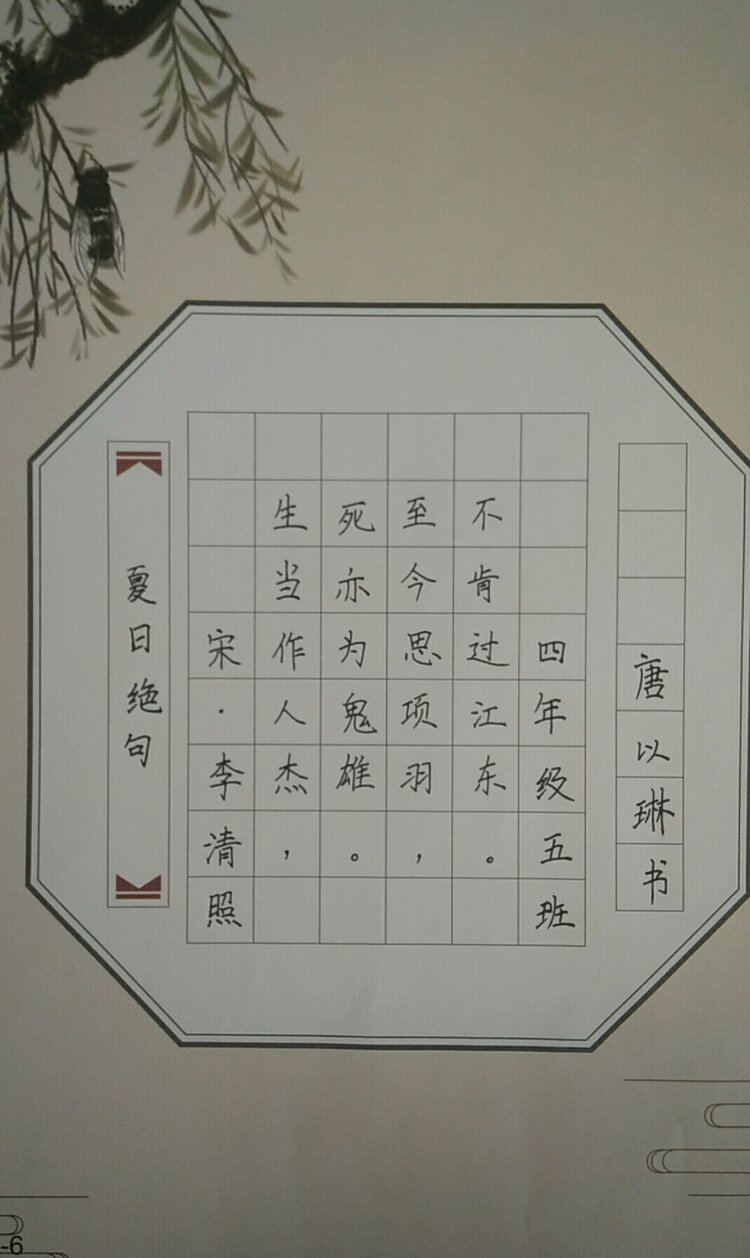 夏日绝句
宋·李清照
生当作人杰，
死亦为鬼雄。
至今思项羽，
不肯过江东。
四年级五班
唐以琳书
-6